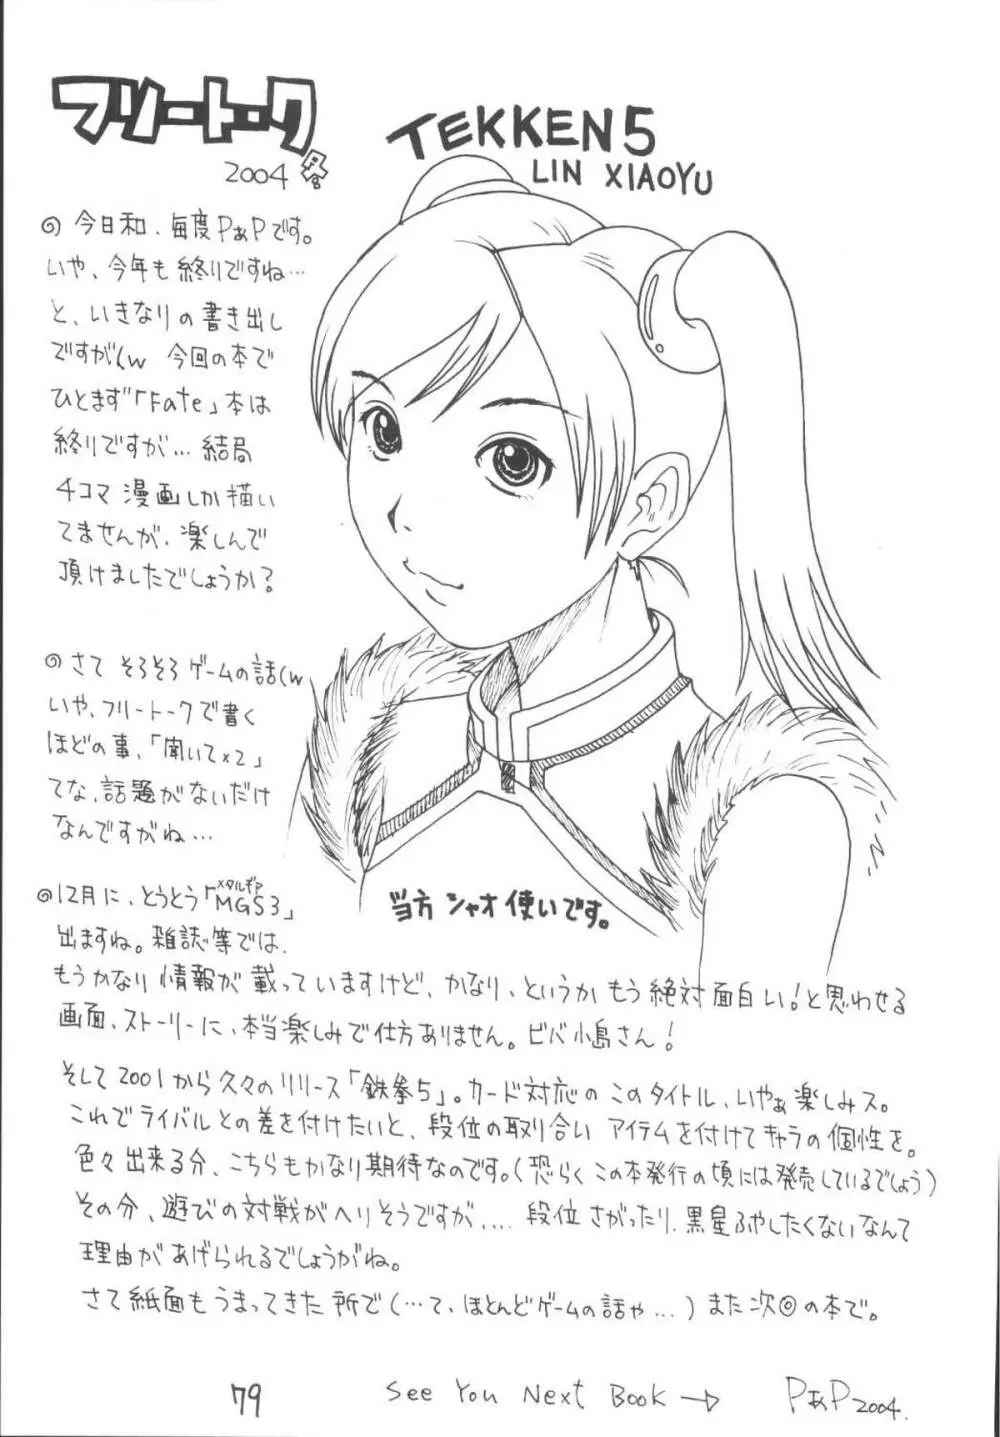 フリートーク
2004
TEKKEN5
LIN XIAOYU
今日和、毎度PぁPです。
いや、今年も終りですね…
と、いきなりの書き出し
ですが(w 今回の本で
ひとまず「Fate」本は
終りですが… 結局
4コマ漫画しか描い
てませんが、楽しんで
頂けましたでしょうか?
さて そろそろゲームの話(w
いや、フリートークで書く
ほどの事、「聞いて×2」
てな、話題がないだけ
なんですがね…
12月に、とうとう「MGS3」
メタルギア
出ますね。雑誌等では、
当方 シャオ使いです。
もうかなり情報が載っていますけど、かなり、というかもう絶対面白い!と思わせる
画面、ストーリーに、本当楽しみで仕方ありません。ビバ小島さん!
そして2001から久々のリリース「鉄拳5」。カード対応のこのタイトル、いやぁ楽しみス。
これでライバルとの差を付けたいと、段位の取り合い アイテムを付けてキャラの個性を。
色々出来る分、こちらもかなり期待なのです。(恐らくこの本発行の頃には発売しているでしょう)
その分、遊びの対戦がヘリそうですが.... 段位さがったり、黒星ふやしたくないなんて
理由があげられるでしょうがね。
さて紙面もうまってきた所で(…て、ほとんどゲームの話や…)また次◎の本で。
79
See You Next Book →
PぁP2004.